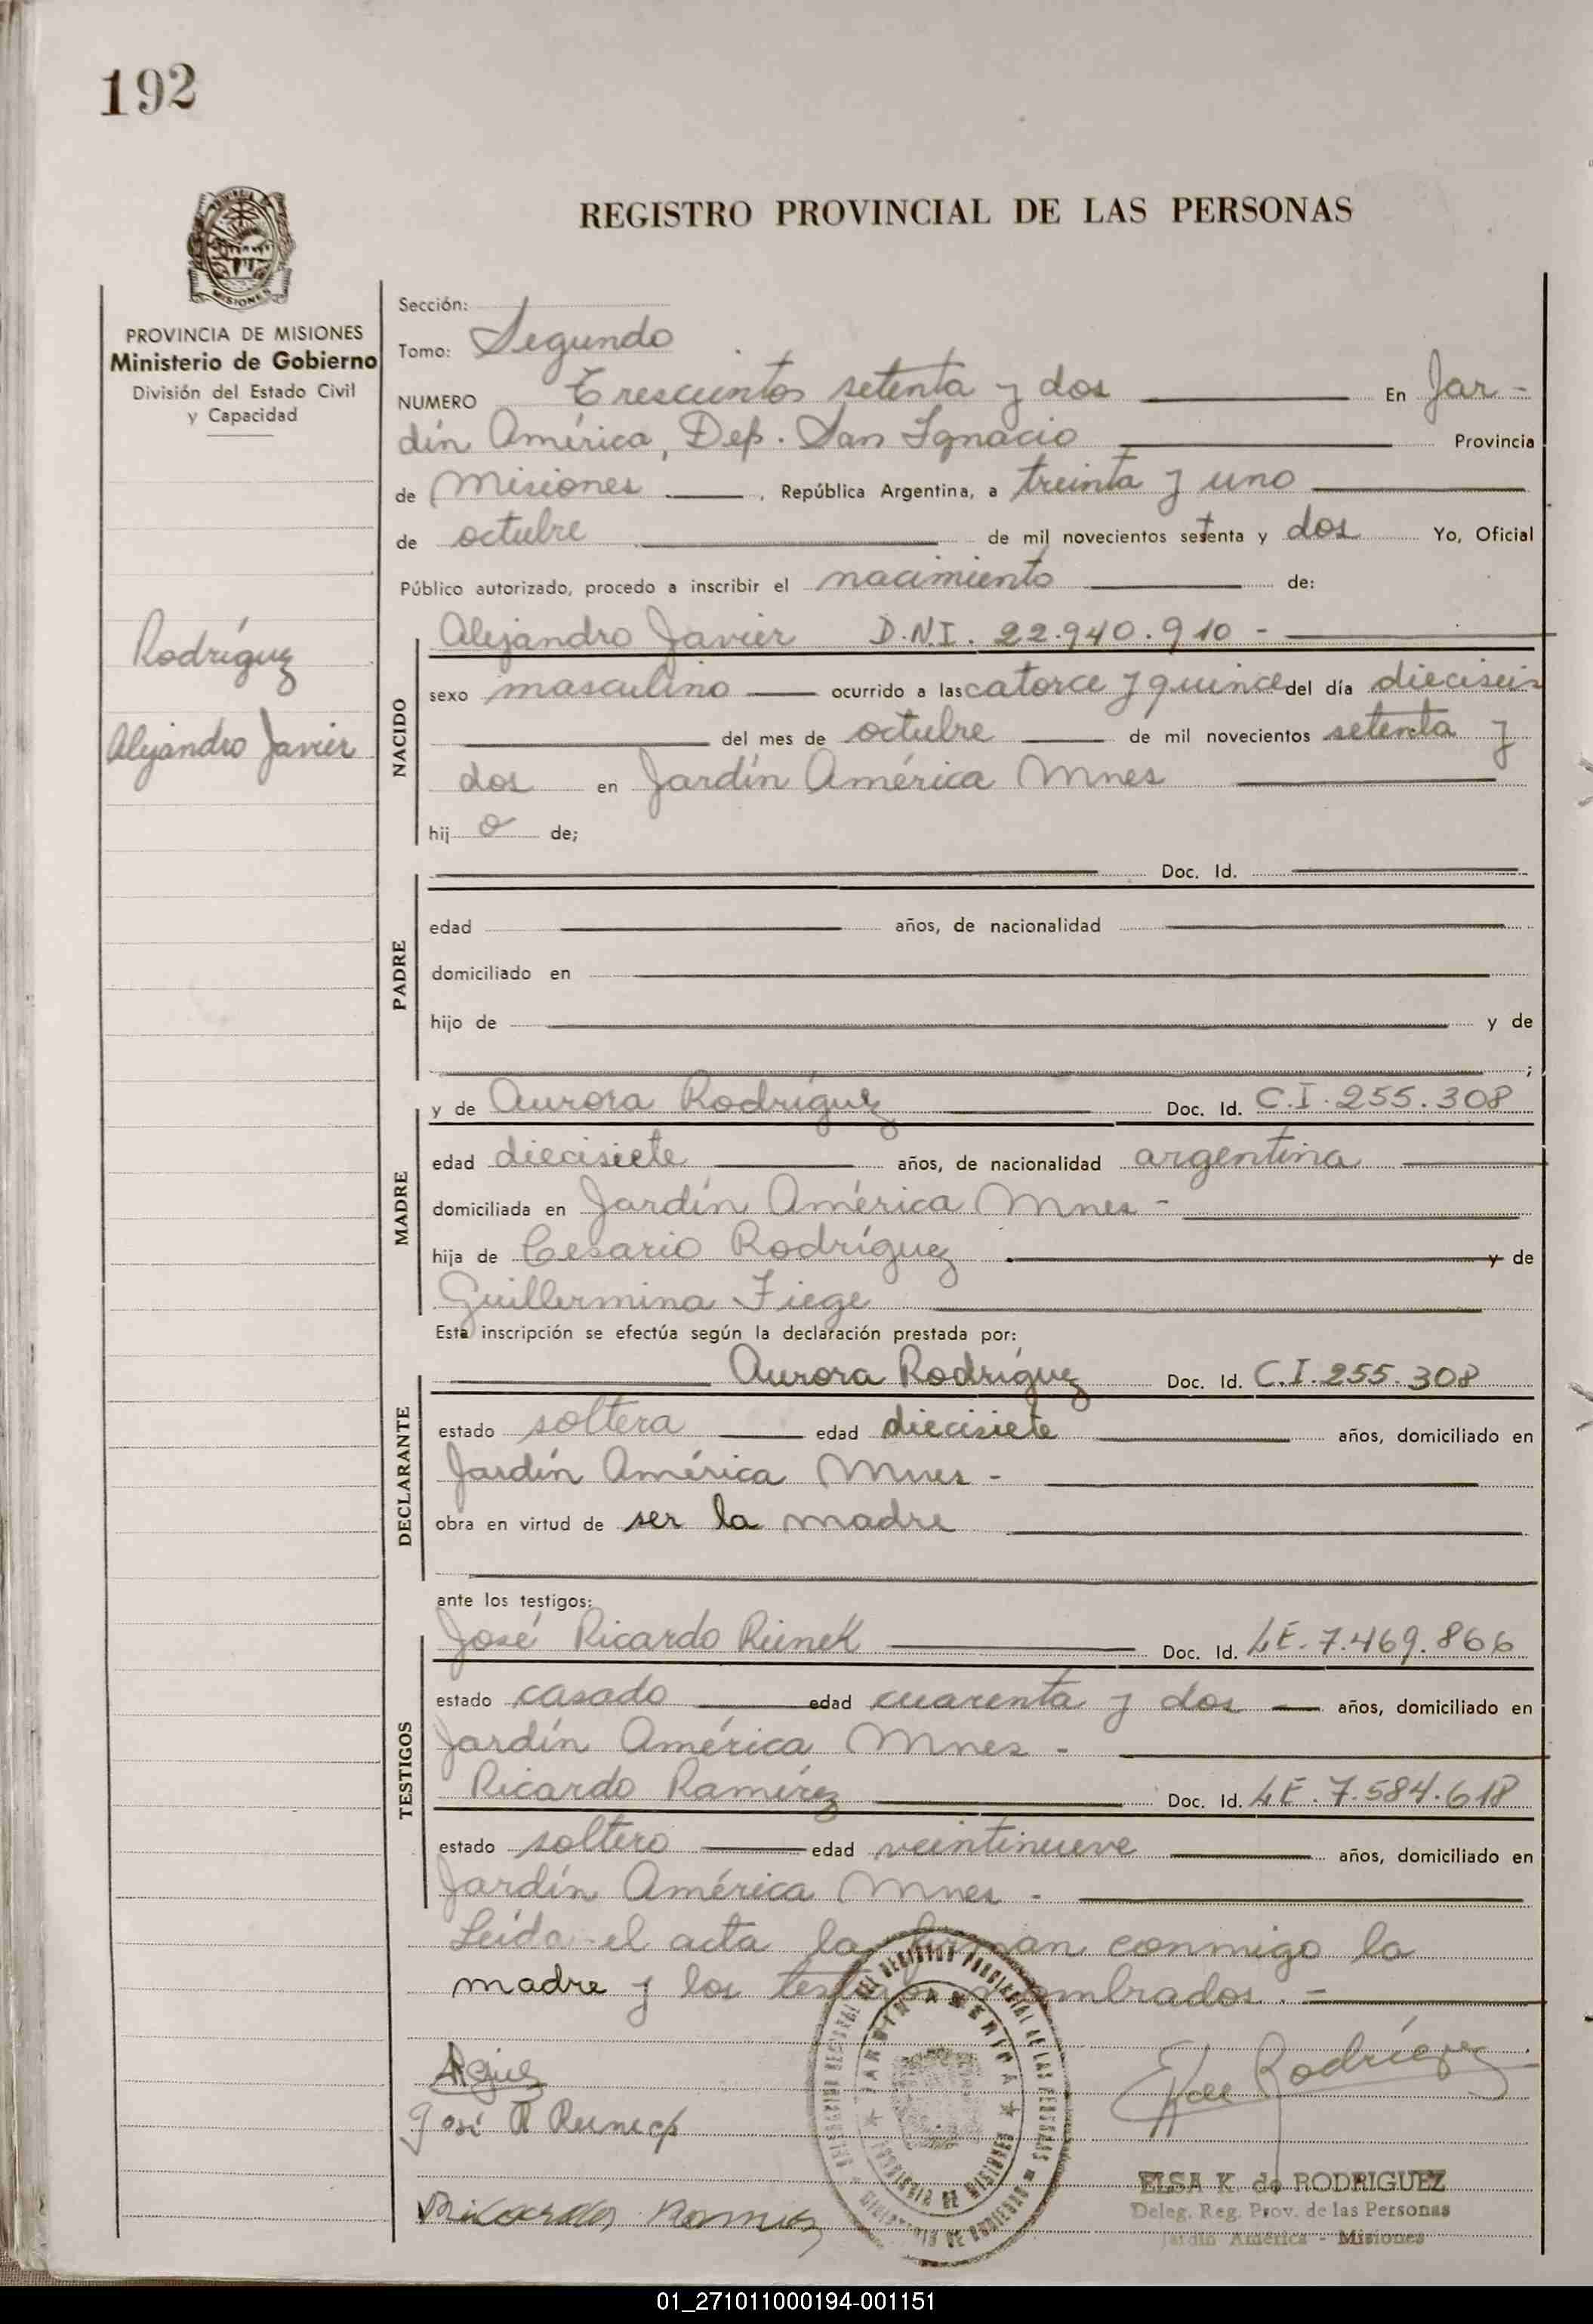 192
REGISTRO PROVINCIAL DE LAS PERSONAS
MISIONES
PROVINCIA DE MISIONES
Ministerio de Gobierno
División del Estado Civil
y Capacidad
Rodríguez
Alejandro Javier
Sección:
Tomo: Segundo
NUMERO Trescientos setenta y dos En Jar-
dín América, Dep. San Ignacio Provincia
de Misiones , República Argentina, a treinta y uno
de octubre de mil novecientos setenta y dos Yo, Oficial
Público autorizado, procedo a inscribir el nacimiento de:
NACIDO
Alejandro Javier D.N.I. 22.940.910 -
sexo masculino ocurrido a las catorce y quince del día dieciseis
del mes de octubre de mil novecientos setenta y
dos en Jardín América Mnes
hij o de;
PADRE
Doc. Id.
edad años, de nacionalidad
domiciliado en
hijo de y de
;
MADRE
y de Aurora Rodríguez Doc. Id. C.I. 255.308
edad diecisiete años, de nacionalidad argentina
domiciliada en Jardín América Mnes -
hija de Cesario Rodríguez y de
Guillermina Fiege
Esta inscripción se efectúa según la declaración prestada por:
DECLARANTE
Aurora Rodríguez Doc. Id. C.I. 255.308
estado soltera edad diecisiete años, domiciliado en
Jardín América Mnes -
obra en virtud de ser la madre
ante los testigos:
TESTIGOS
José Ricardo Reinek Doc. Id. LE. 7.469.866
estado casado edad cuarenta y dos años, domiciliado en
Jardín América Mnes -
Ricardo Ramírez Doc. Id. LE. 7.584.618
estado soltero edad veintinueve años, domiciliado en
Jardín América Mnes -
Leída el acta la firman conmigo la
madre y los testigos nombrados. -
Rodríguez
José R
Ricardo Ramirez
JARDIN AMERICA
PROVINCIA DE MISIONES
ELSA K. de RODRIGUEZ
Deleg. Reg. Prov. de las Personas
Jardín América - Misiones
01_271011000194-001151